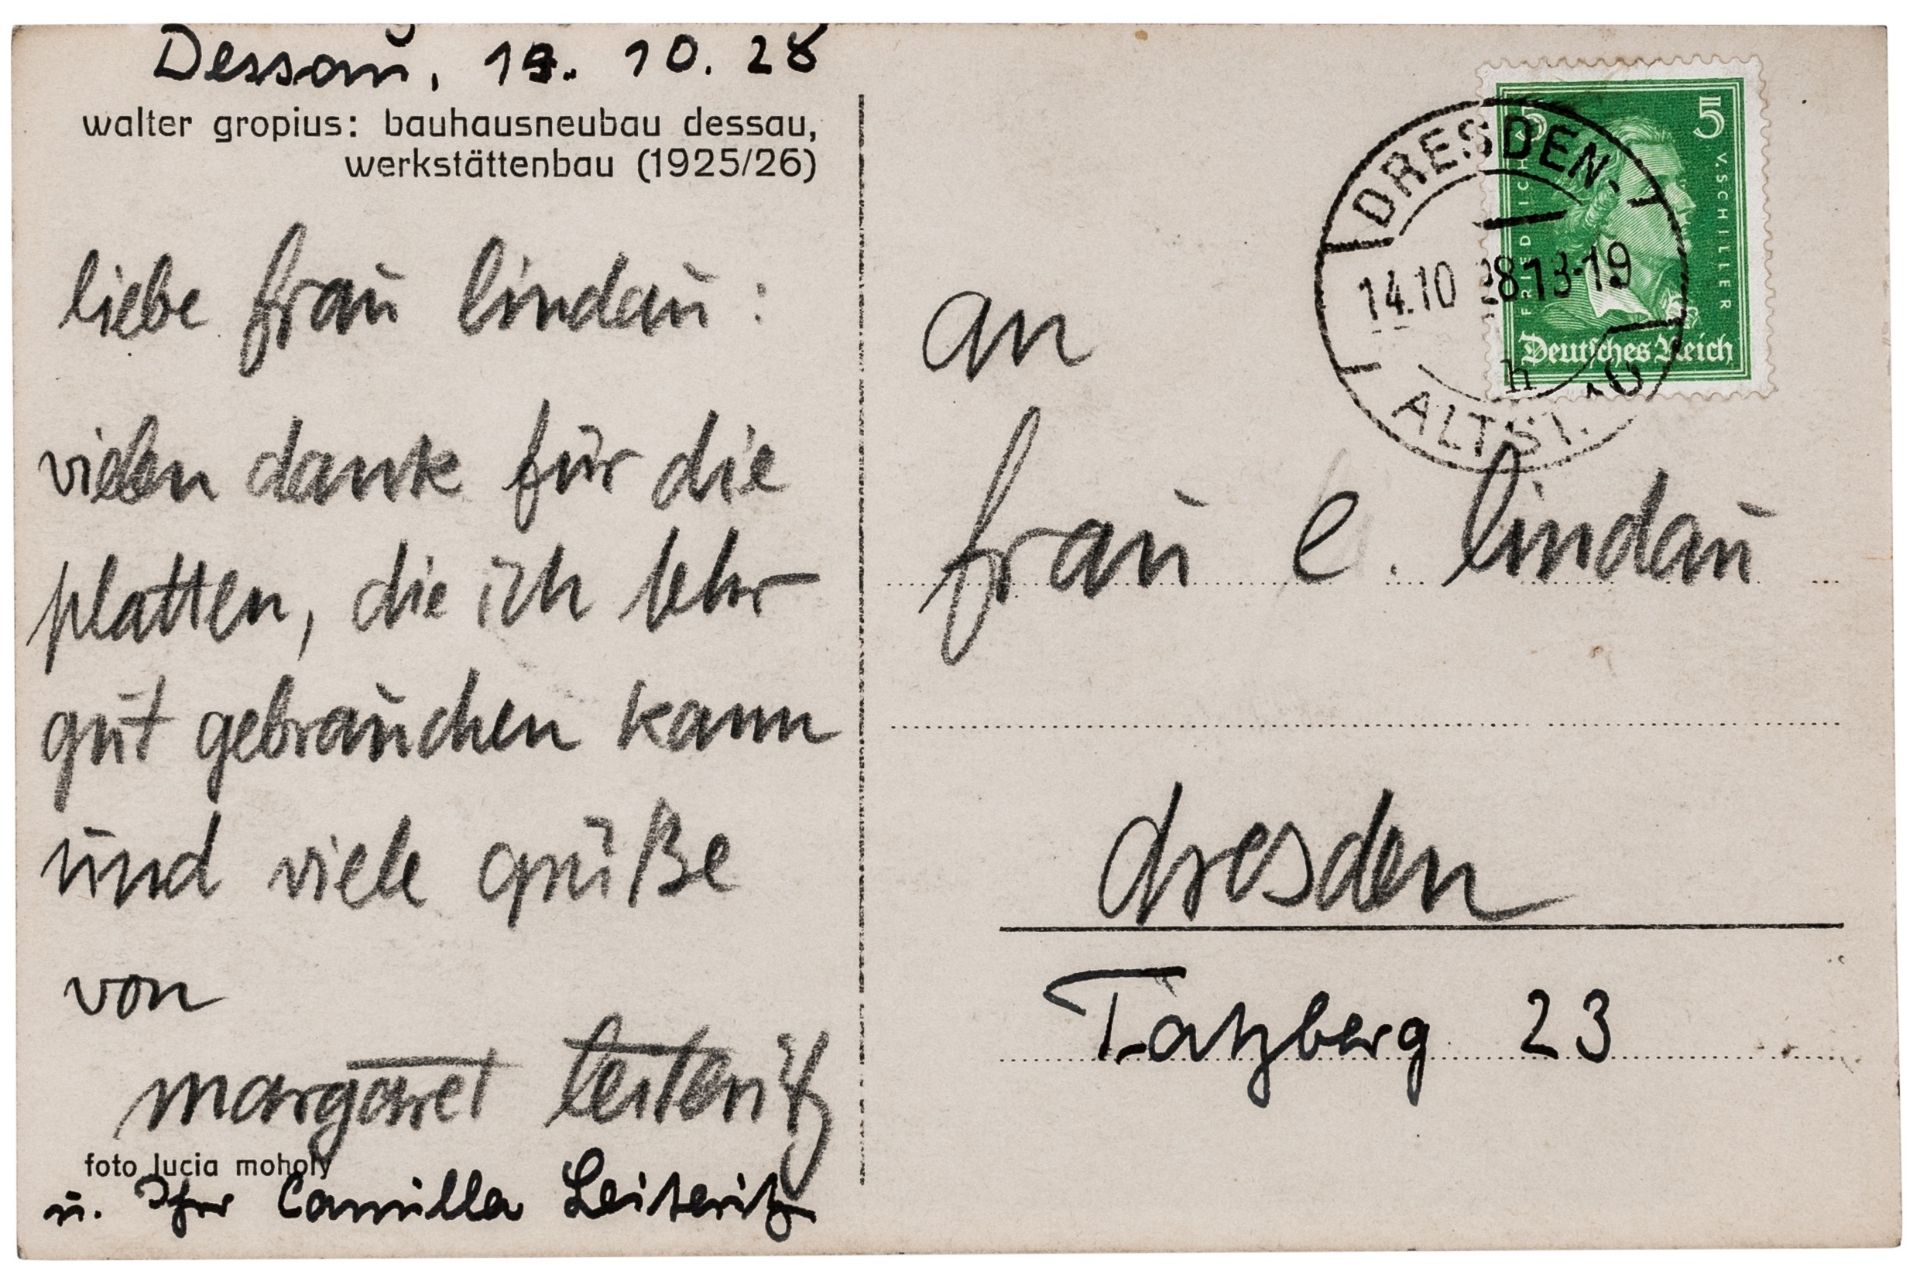 Dessau, 19. 10. 28
walter gropius: bauhausneubau dessau,
werkstättenbau (1925/26)
liebe frau lindau:
vielen dank für die
platten, die ich sehr
gut gebrauchen kann
und viele grüße
von
margaret leiteritz
foto lucia moholy
u. Ihre Camilla Leiteritz
DRESDEN-
14.10 28.18-19
h
ALTST.
5 5
FRIEDRICH V. SCHILLER
Deutsches Reich
an
frau e. lindau
dresden
Tatzberg 23